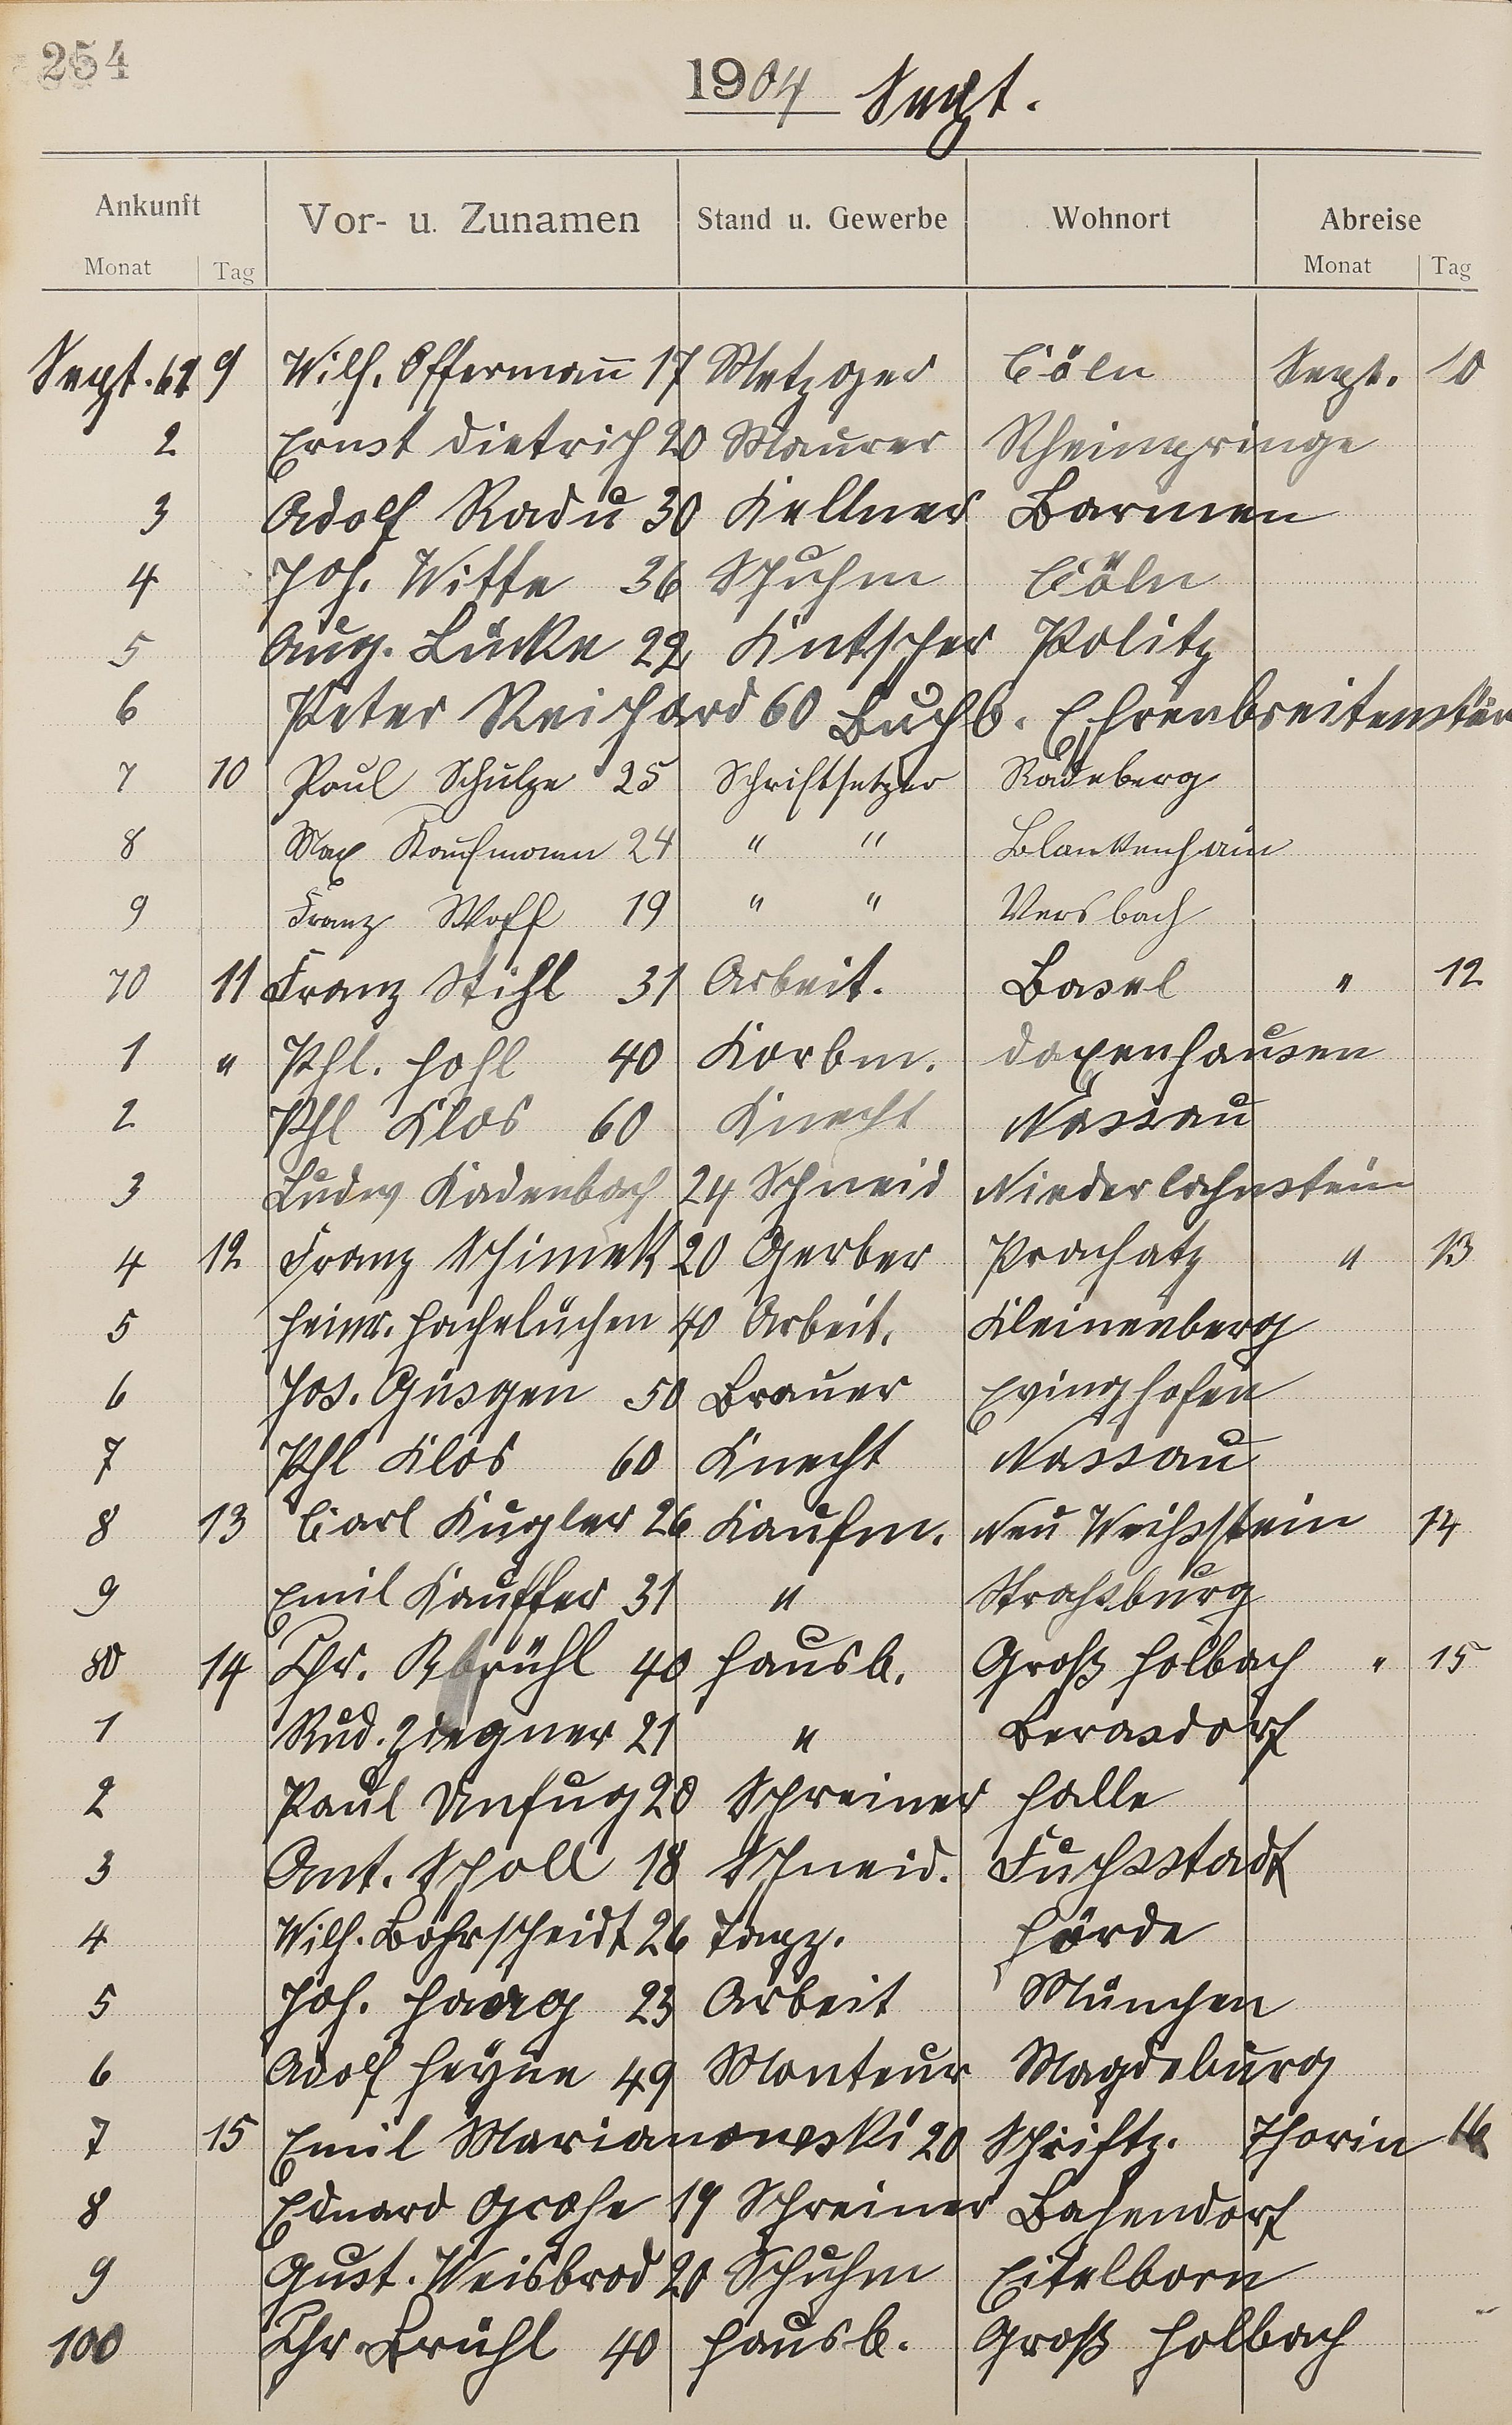 254
1904 Sept.
Ankunft Vor- u. Zunamen Stand u. Gewerbe Wohnort Abreise
Monat Tag Monat Tag
Sept. 61 9 Wilh. Offermann̄ 17 Metzger Cöln Sept. 10
2 Ernst Dietrich 20 Maurer
3 Adolf Radu 30 Kellner Barmen
4 Joh. Witte 36 Schuhm Cöln
5 Aug. Lücke 22 Kutscher Politz
6 Peter Reichard 60 Buchb. Ehrenbreitenstein
7 10 Paul Schulze 25 Schriftsetzer Radeberg
8 Max Kaufmann 24 " " Blankenhain
9 Franz Woff 19 " " Versbach
70 11 Franz Stihl 31 Arbeit. Basel " 12
1 " Phl. Hohl 40 Korbm. Daxenhausen
2 Phl Klos 60 Knecht Nassau
3 Ludw Kadenbach 24 Schneid Niederlahnstein
4 12 Franz Schimek 20 Gerber Prachatz " 13
5 Heinr. Hachelüchen 40 Arbeit. Kleinenberg
6 Jos. Güsgen 50 Brauer Evinghofen
7 Phl Klos 60 Knecht Nassau
8 13 Carl Kugler 26 Kaufm. Neu Weißstein 14
9 Emil Kauffer 31 " Straßburg
80 14 Chr. Brühl 40 Hausb. Groß Holbach " 15
1 Rud. Ziegner 21 " Berasdorf
2 Paul Unfug 20 Schreiner Halle
3 Ant. Scholl 18 Schneid. Fuchsstadt
4 Wilh. Bohrscheidt 26 Tapz. Hörde
5 Joh. Haag 23 Arbeit München
6 Adolf Heyne 49 Monteur Magdeburg
7 15 Emil Marianowski 20 Schriftz. Thorin 16
8 Eduard Grohe 19 Schreiner Bahendorf
9 Gust. Weisbrod 20 Schuhm Eitelborn
100 Chr. Brühl 40 Hausb. Groß Holbach